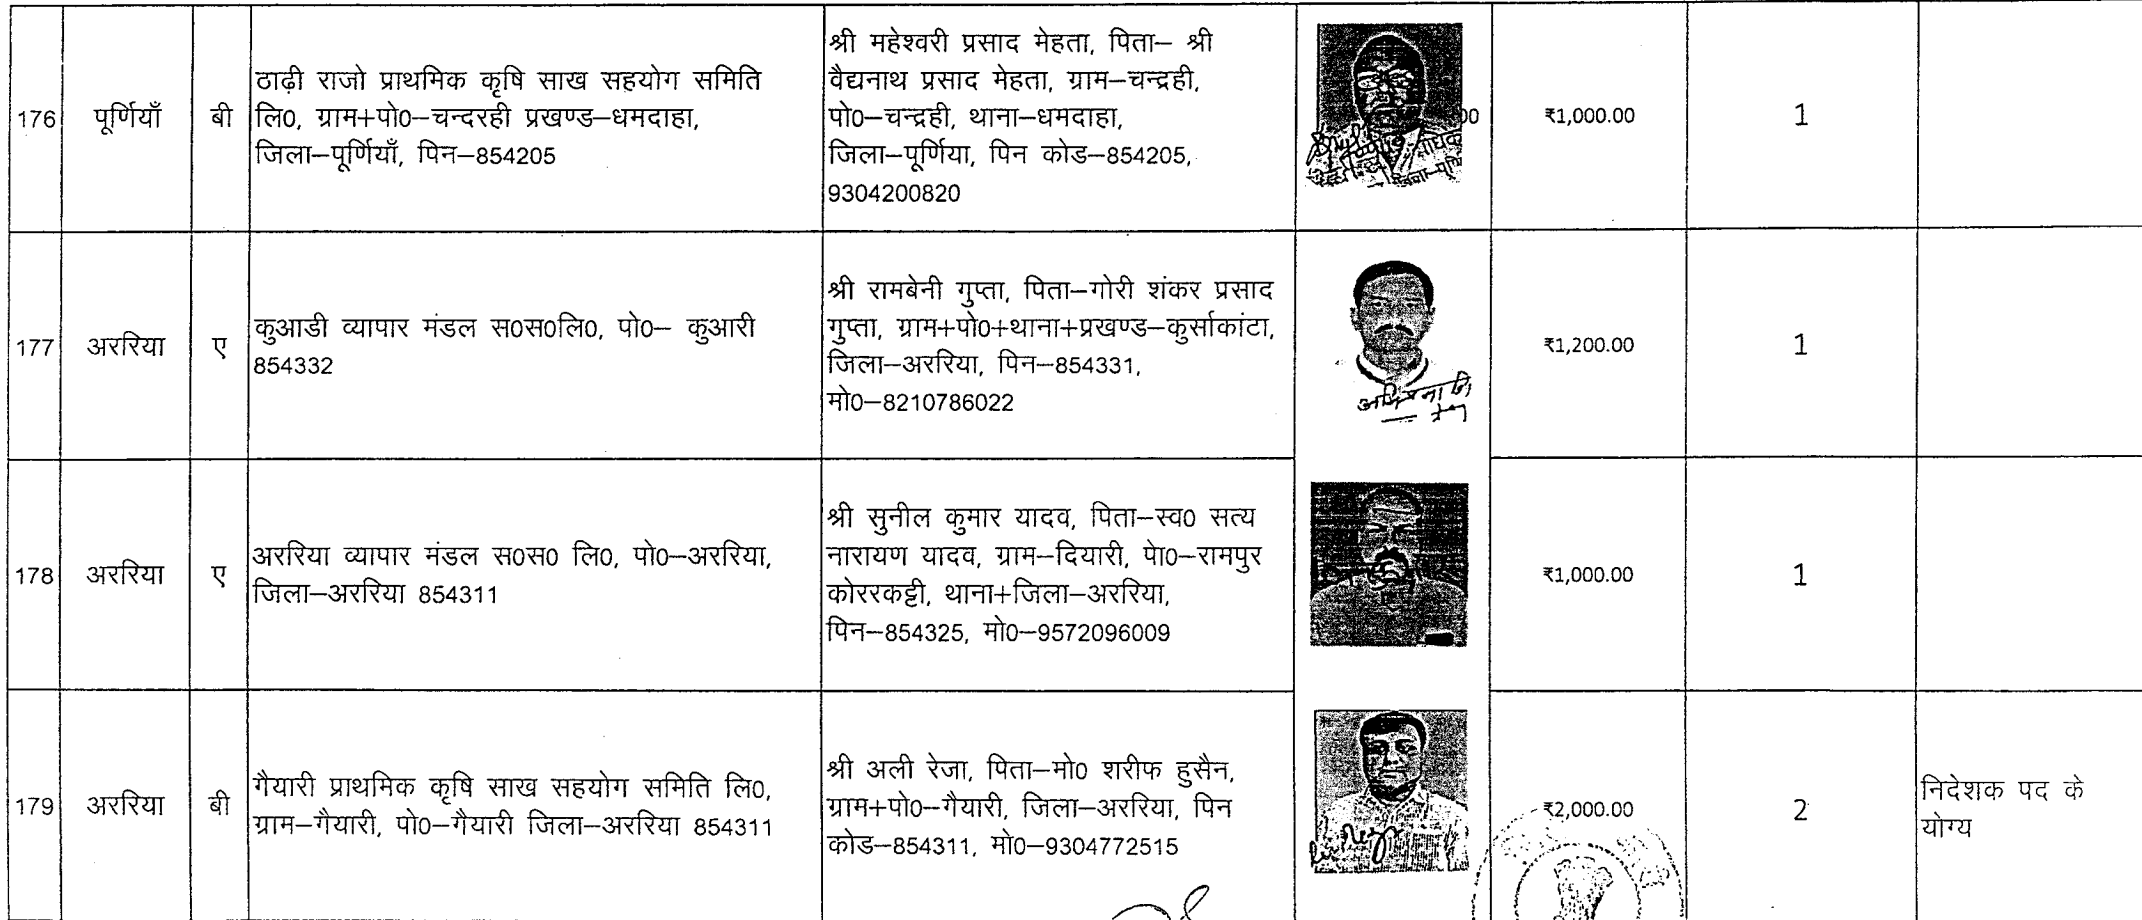 176
पूर्णियाँ
बी
ठाढ़ी राजो प्राथमिक कृषि साख सहयोग समिति
लि0, ग्राम+पो0–चन्दरही प्रखण्ड–धमदाहा,
जिला–पूर्णियाँ, पिन–854205
श्री महेश्वरी प्रसाद मेहता, पिता– श्री
वैद्यनाथ प्रसाद मेहता, ग्राम–चन्द्रही,
पो0–चन्द्रही, थाना–धमदाहा,
जिला–पूर्णिया, पिन कोड–854205,
9304200820
₹1,000.00
1
177
अररिया
ए
कुआडी व्यापार मंडल स0स0लि0, पो0– कुआरी
854332
श्री रामबेनी गुप्ता, पिता–गोरी शंकर प्रसाद
गुप्ता, ग्राम+पो0+थाना+प्रखण्ड–कुर्साकांटा,
जिला–अररिया, पिन–854331,
मो0–8210786022
₹1,200.00
1
178
अररिया
ए
अररिया व्यापार मंडल स0स0 लि0, पो0–अररिया,
जिला–अररिया 854311
श्री सुनील कुमार यादव, पिता–स्व0 सत्य
नारायण यादव, ग्राम–दियारी, पेा0–रामपुर
कोररकट्टी, थाना+जिला–अररिया,
पिन–854325, मो0–9572096009
₹1,000.00
1
179
अररिया
बी
गैयारी प्राथमिक कृषि साख सहयोग समिति लि0,
ग्राम–गैयारी, पो0–गैयारी जिला–अररिया 854311
श्री अली रेजा, पिता–मो0 शरीफ हुसैन,
ग्राम+पो0–गैयारी, जिला–अररिया, पिन
कोड–854311, मो0–9304772515
₹2,000.00
2
निदेशक पद के
योग्य